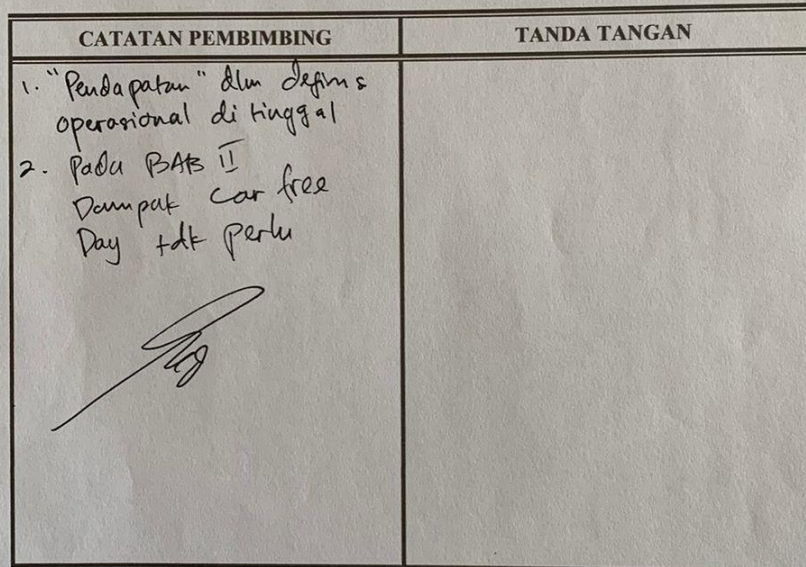 CATATAN PEMBIMBING
TANDA TANGAN
1. "Pendapatan" dlm definis
operasional di tinggal
2. Pada BAB II
Dampak Car free
Day tdk perlu